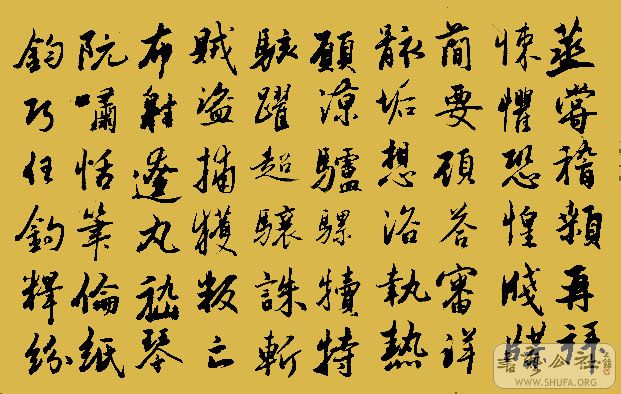 蒸嘗稽顙再拜
悚懼恐惶牋牒
簡要顧答審詳
骸垢想浴執熱
願涼驢騾犢特
駭躍超驤誅斬
賊盜捕獲叛亡
布射遼丸嵇琴
阮嘯恬筆倫紙
鈞巧任釣釋紛
書法公社
WWW.SHUFA.ORG